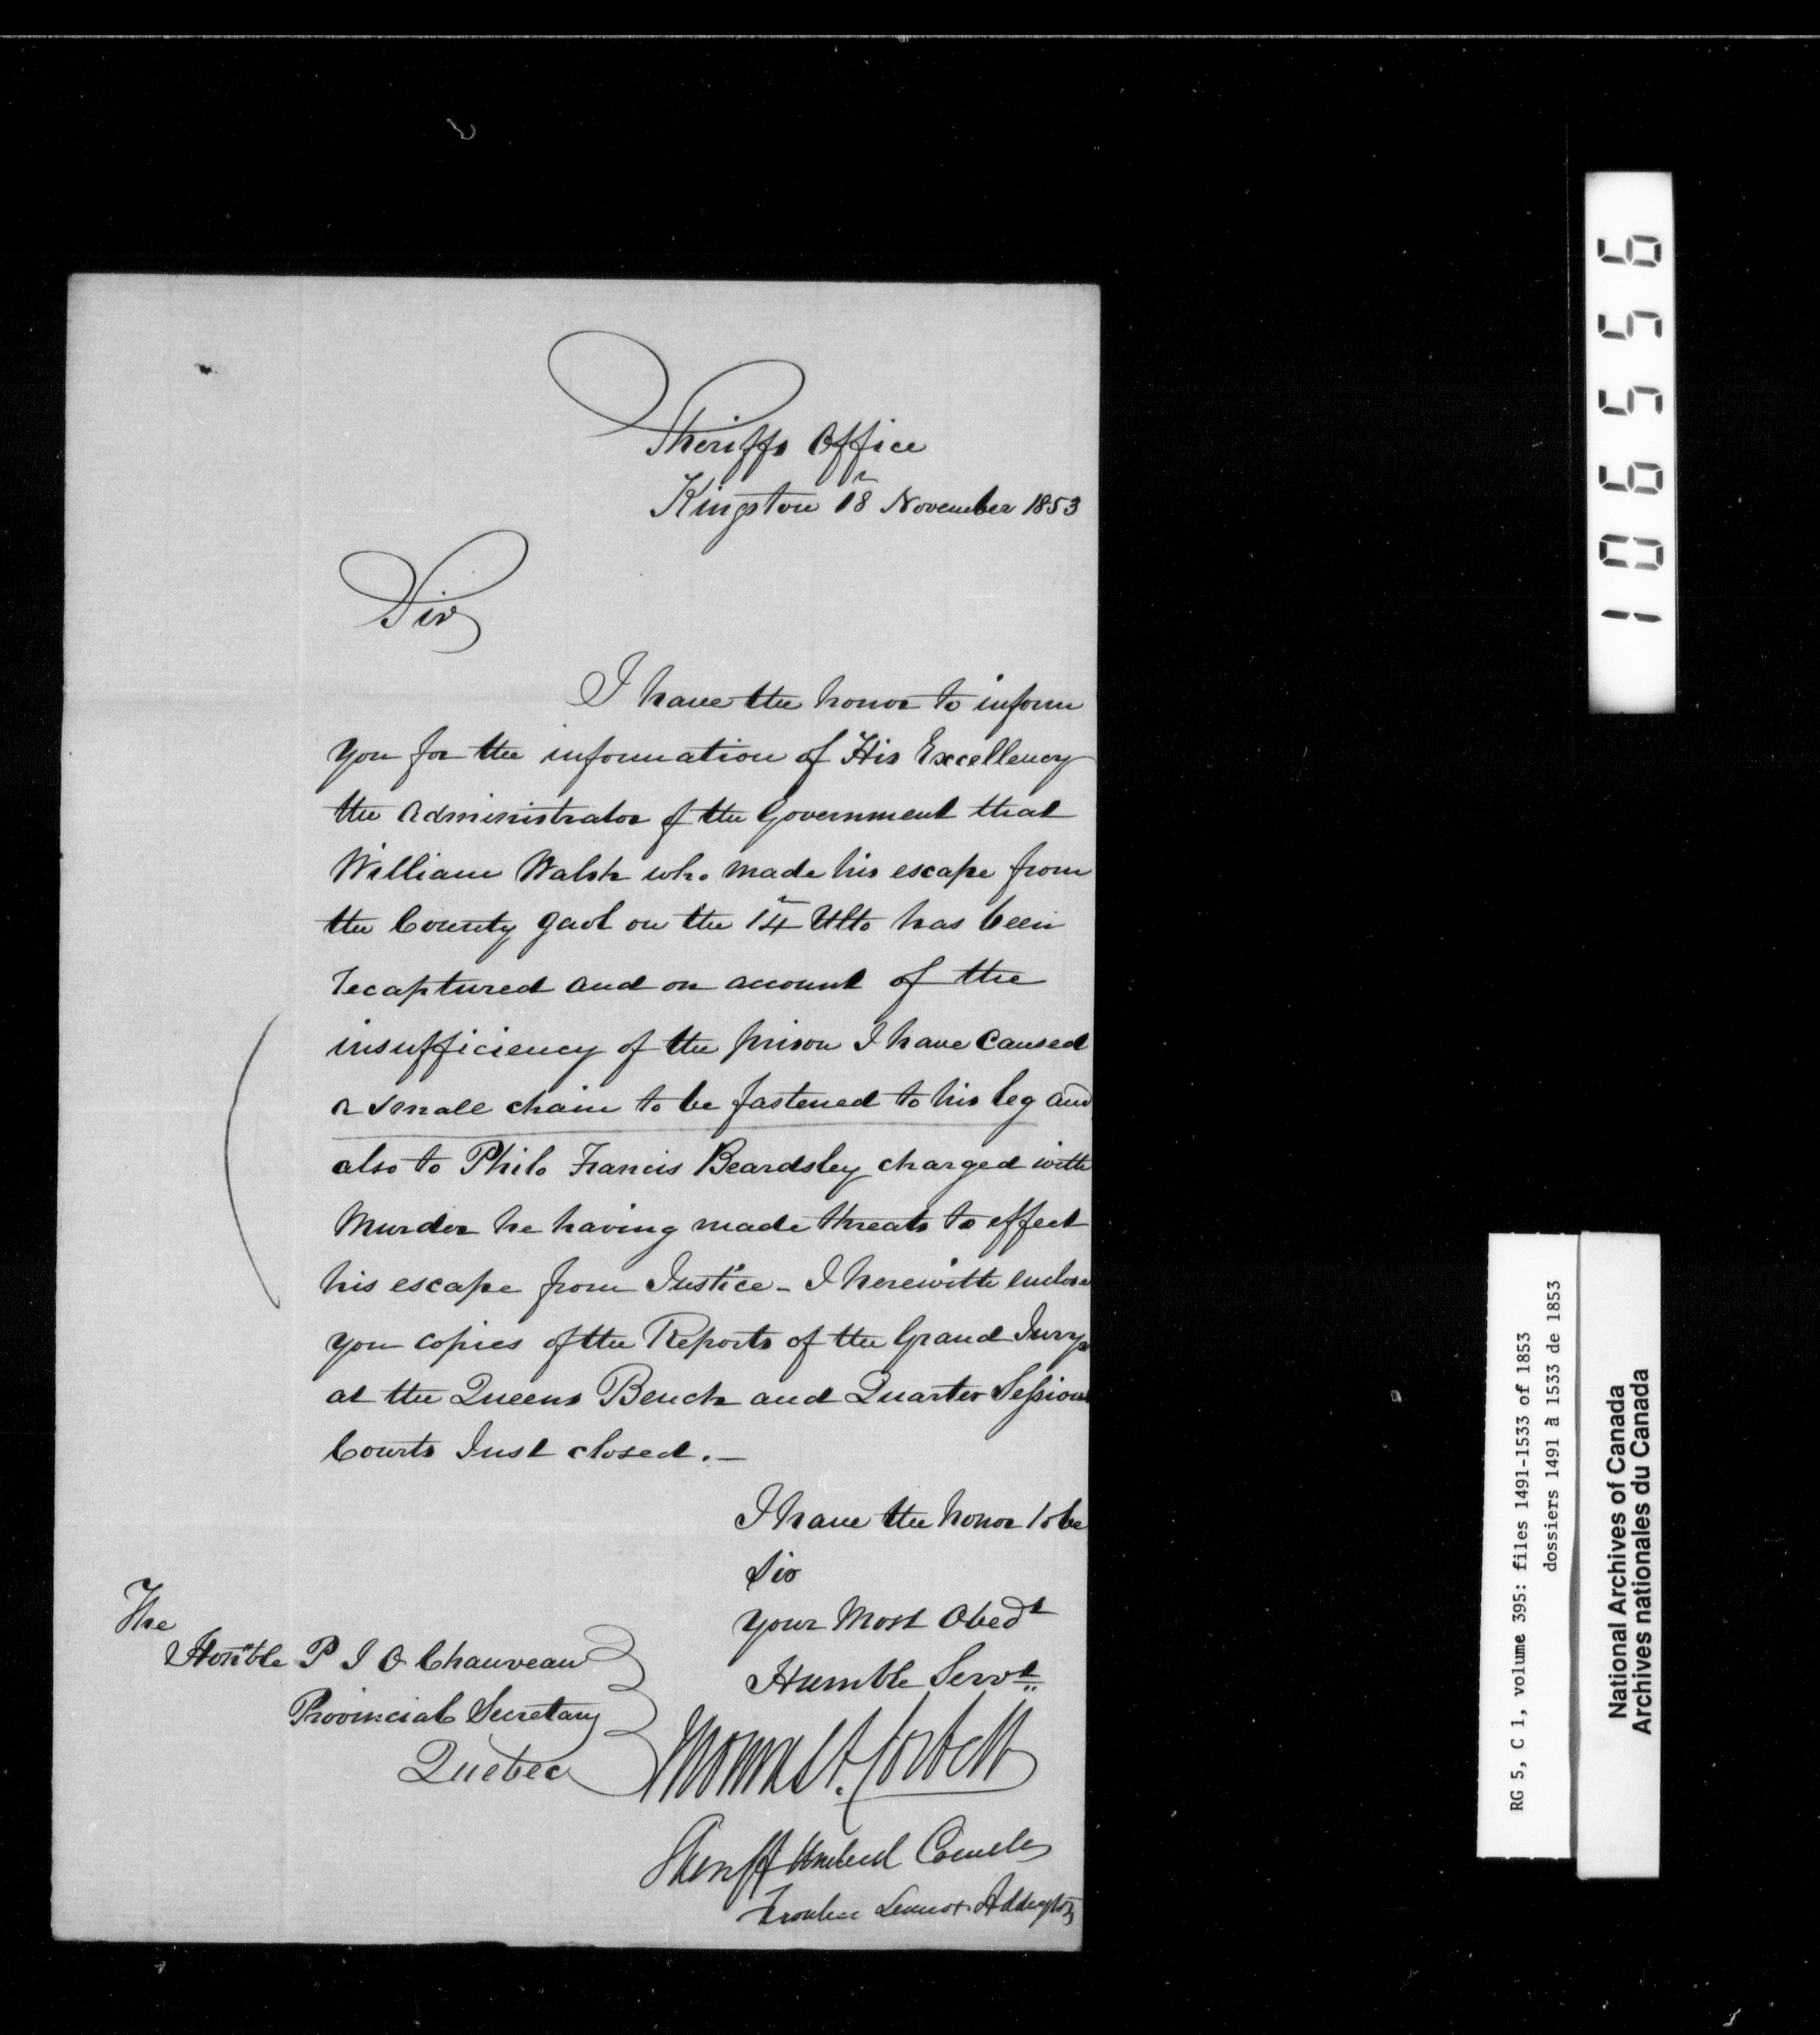 Sheriffs Office
Kingston 18 November 1853
Sir
I have the honor to inform
you for the information of His Excellency
the Administrator of the Government that
William Walsh who made his escape from
the County gaol on the 14 Ulto has been
recaptured and on account of the
insufficiency of the prison I have caused
a small chain to be fastened to his leg and
also to Philo Francis Beardsley charged with
Murder he having made threats to effect
his escape from Justice - I herewith enclose
you copies of the Reports of the Grand Jurys
at the Queens Bench and Quarter Sessions
Courts Just closed. -
I have the honor to be
Sir
your Most Obedt
Humble Servt
The
Honble P J O Chauveau
Provincial Secretary
Quebec
Thomas A. Corbett
Sheriff United Counties
Frontenac Lennox & Addington
106556
RG 5, C 1, volume 395: files 1491-1533 of 1853
dossiers 1491 à 1533 de 1853
National Archives of Canada
Archives nationales du Canada